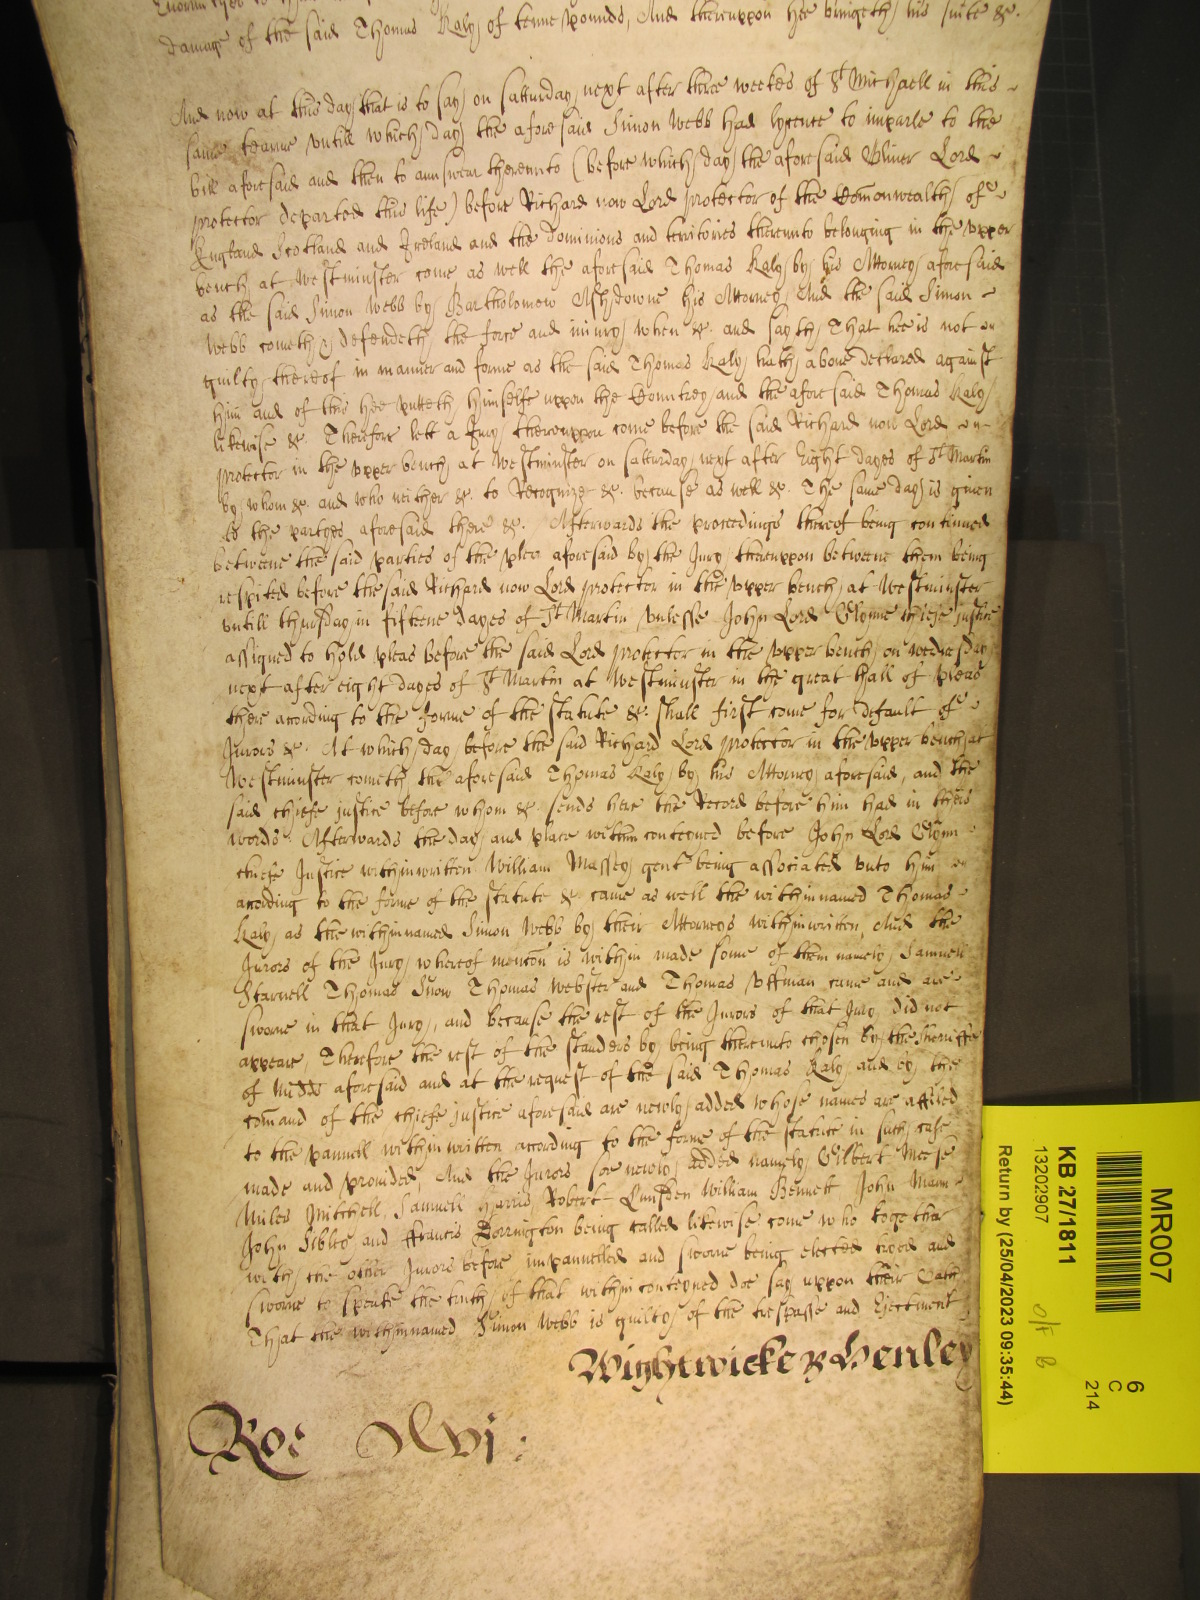 damage of the said Thomas Kaly of tenne pounds, And thereuppon hee bringeth his suite &c.
And now at this day that is to say on satturday next after three weekes of St Michaell in this
same tearme untill which day the aforesaid Simon Webb had lycence to imparle to the
bill aforesaid and then to answeare thereunto (before which day the aforesaid Oliver Lord
protector departed this life) before Richard now Lord protector of the Comonwealth of
England Scotland and Ireland and the dominions and territories thereunto belonging in the upper
bench at Westminster come as well the aforesaid Thomas Kaly by his Attorney aforesaid
as the said Simon Webb by Bartholomew Ashdowne his Attorney, And the said Simon
Webb cometh & defendeth the force and iniury when &c. and sayth That hee is not
guilty thereof in manner and forme as the said Thomas Kaly hath above declared against
him and of this hee putteth himselfe uppon the Countrey and the aforesaid Thomas Kaly
likewise &c. Therefore lett a Iury thereuppon come before the said Richard now Lord
protector in the upper bench at Westminster on satturday next after Eight dayes of St Martin
by whom &c. and who neither &c. to Recognize &c. because as well &c. The same day is given
to the partyes aforesaid there &c. Afterwards the proceedings thereof being continued
betweene the said parties of the plea aforesaid by the Iury thereuppon betweene them being
respited before the said Richard now Lord protector in the upper bench at Westminster
untill thursday in fifteene dayes of St Martin unlesse John Lord Glynne chiefe justice
assigned to hold pleas before the said Lord protector in the upper bench on wednesday
next after eight dayes of St Martin at Westminster in the great hall of pleas
there acording to the forme of the statute &c. shall first come for default of
Jurors &c. At which day before the said Richard Lord protector in the upper bench at
Westminster cometh the aforesaid Thomas Kaly by his Attorney aforesaid, and the
said chiefe justice before whom &c. sends here the Record before him had in theis
words. Afterwards the day and place within conteyned before John Lord Glynn
chiefe Justice withinwritten William Massey gent being associated unto him
acording to the forme of the statute &c. came as well the withinnamed Thomas
Kaly as the withinnamed Simon Webb by their Attorneys withinwritten, And the
Jurors of the Jury whereof mencon is within made some of them namely Samuell
Starnell Thomas Snow Thomas Webster and Thomas Uffman came and are
sworne in that Jury, and because the rest of the Jurors of that Jury did not
appeare, Therefore the rest of the standers by being thereunto chosen by the Sheriffe
of Midds aforesaid and at the request of the said Thomas Kaly and by the
comand of the chiefe justice aforesaid are newly added whose names are affiled
to the pannell withinwritten according to the forme of the statute in such case
made and provided, And the Jurors soe newly added namely Gilbert Meese
Miles Mitchell, Samuell Harris, Robert Lumsden William Bennett John Mann
John Sibley and ffrancis Dorrington being called likewise come who together
with the other Jurors before impannelled and sworne being elected tryed and
sworne to speake the truth of that within conteyned doe say uppon their Oath
That the withinnamed Simon Webb is guilty of the trespasse and Ejectment
Wightwicke & Henley
Ro: xlvj:
MR007
6
C
214
KB 27/1811
13202907
O/F B
Return by (25/04/2023 09:35:44)